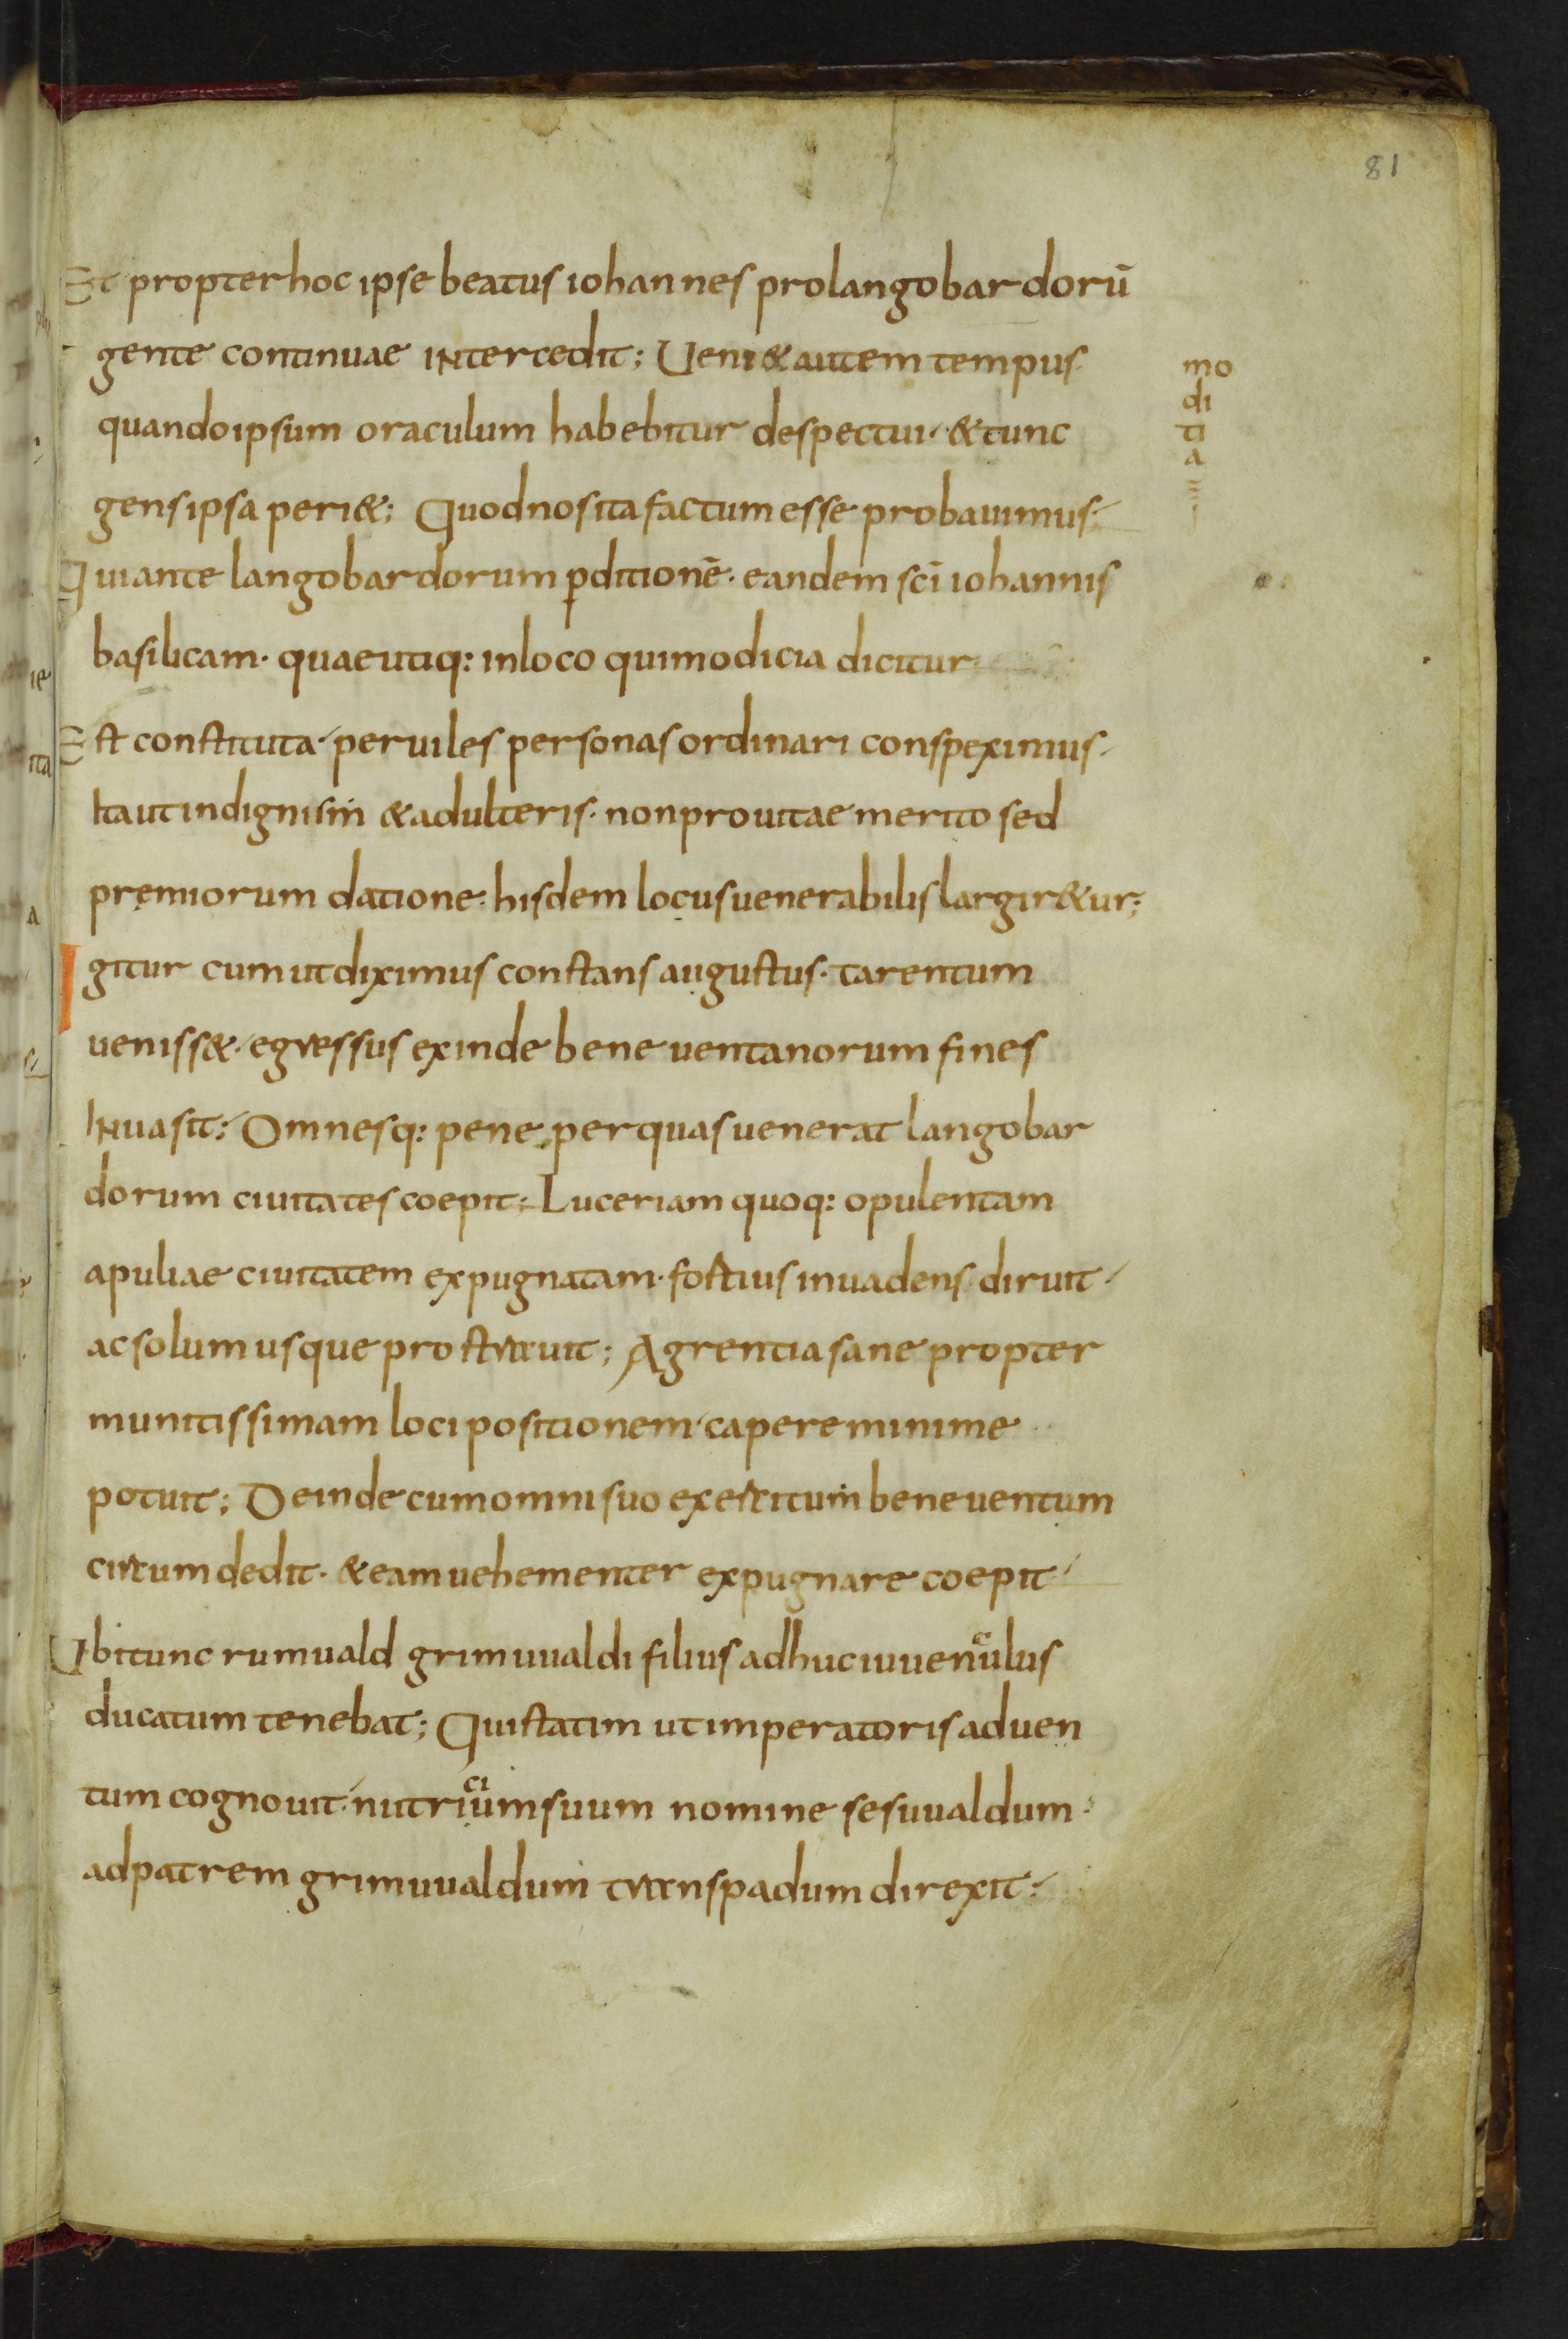 81
Et propter hoc ipse beatus iohannes pro langobardorū
gente continuae intercedit; Ueni& autem tempus
quando ipsum oraculum habebitur despectui· & tunc
gens ipsa peri&; Quod nos ita factum esse probauimus·
Qui ante langobardorum ꝑditionē· eandem scī iohannis
basilicam· quae utiq: in loco qui modicia dicitur
Est constituta· per uiles personas ordinari conspeximus·
Ita ut indignis & adulteris· non pro uitae merito sed
premiorum datione· hisdem locus uenerabilis largir&ur;
Igitur cum ut diximus constans augustus· tarentum
ueniss&· egressus exinde beneuentanorum fines
Inuasit; Omnesq: pene per quas uenerat langobar
dorum ciuitates coepit; Luceriam quoq: opulentam
apuliae ciuitatem expugnatam· fostius inuadens diruit·
ac solum usque prostrauit; Agrentia sane propter
munitissimam loci positionem· capere minime
potuit; Deinde cum omni suo exercitum beneuentum
circumdedit· & eam uehementer expugnare coepit
Ubi tunc rumuald grimuualdi filius adhuc iuuenculus
ducatum tenebat; Qui statim ut imperatoris aduen
tum cognouit· nutricium suum nomine sesuualdum·
ad patrem grimuualdum trans padum direxit·
mo
di
ti
a